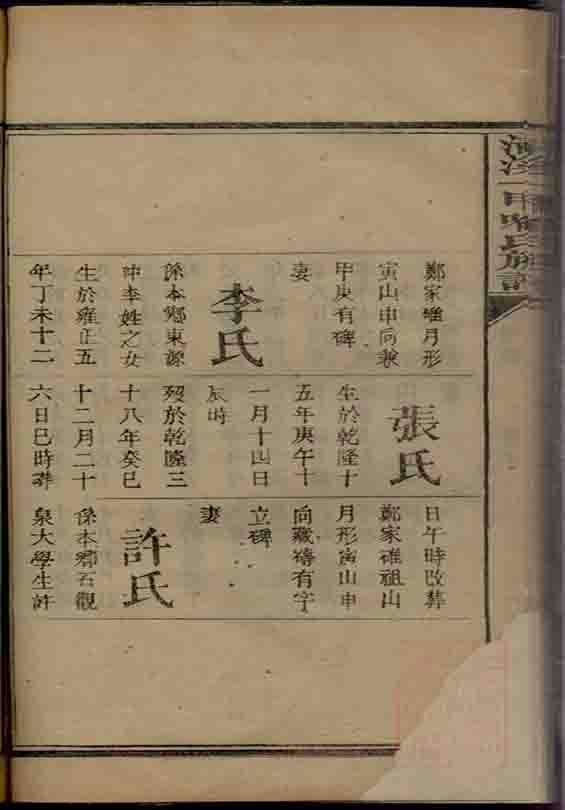 一甲氏族
鄭家碓月形
寅山申向兼
甲庚有碑
妻
李氏
係本鄉東源
冲李姓之女
生於雍正五
年丁未十二
張氏
生於乾隆十
五年庚午十
一月十四日
辰時
歿於乾隆三
十八年癸巳
十二月二十
六日巳時葬
日午時改葬
鄭家碓祖山
月形寅山申
向藏禱有字
立碑
妻
許氏
係本鄉石觀
泉大學生許